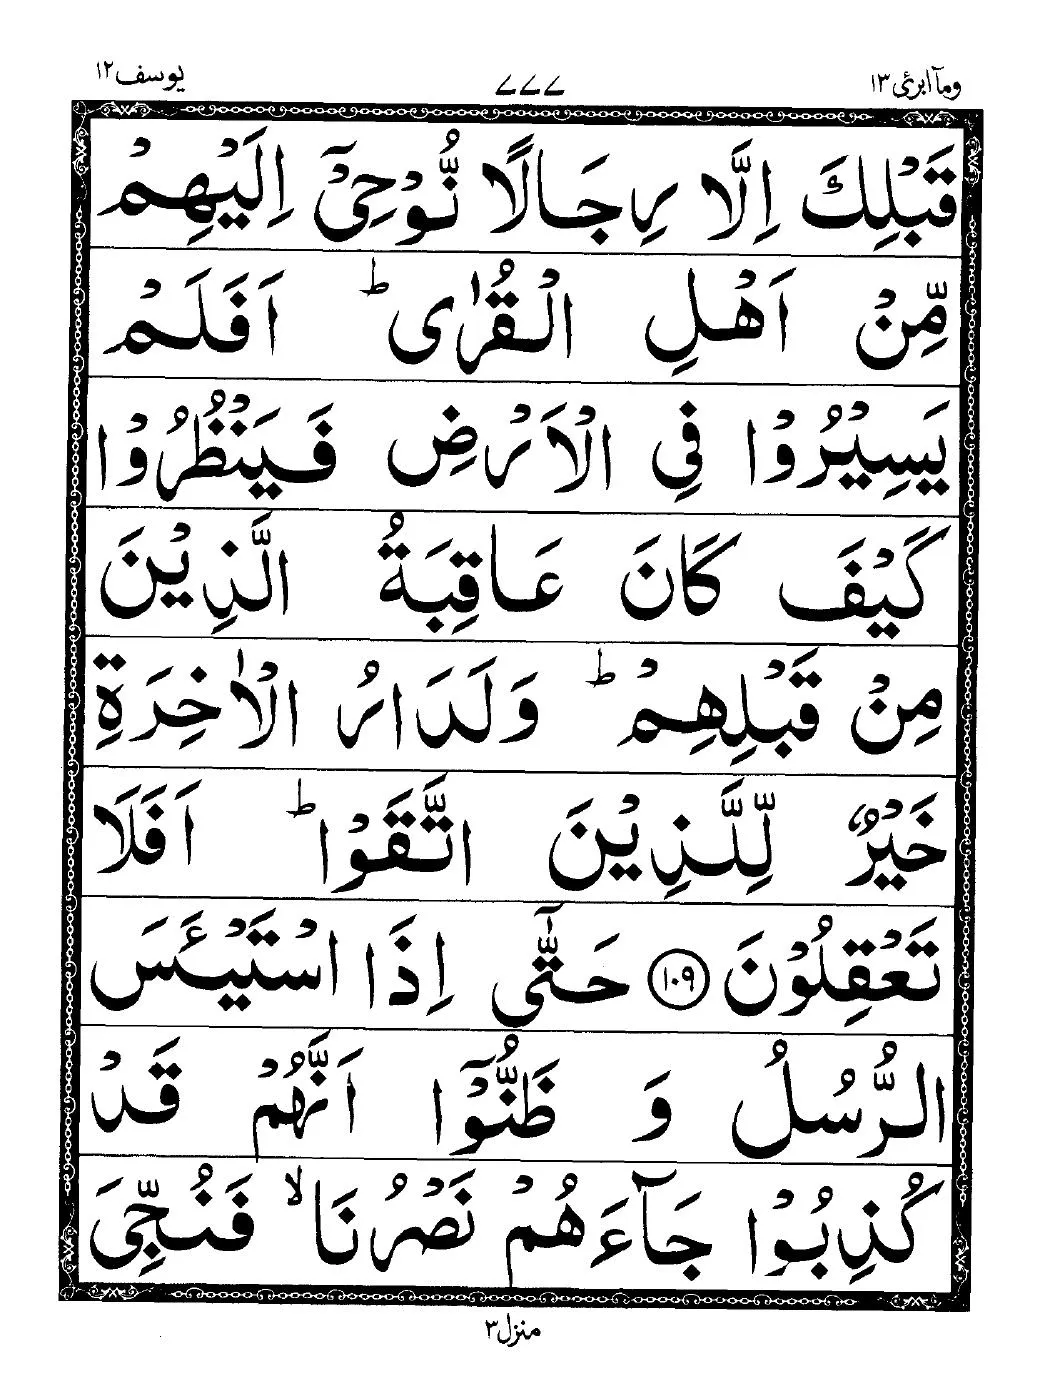 ومآ ابرئ ١٣ ٧٧٧ يوسف ١٢
قَبْلِكَ اِلَّا رِجَالًا نُّوْحِيْٓ اِلَيْهِمْ
مِّنْ اَهْلِ الْقُرٰى ؕ اَفَلَمْ
يَسِيْرُوْا فِي الْاَرْضِ فَيَنْظُرُوْا
كَيْفَ كَانَ عَاقِبَةُ الَّذِيْنَ
مِنْ قَبْلِهِمْ ؕ وَلَدَارُ الْاٰخِرَةِ
خَيْرٌ لِّلَّذِيْنَ اتَّقَوْا ؕ اَفَلَا
تَعْقِلُوْنَ ١٠٩ حَتّٰٓى اِذَا اسْتَيْـَٔسَ
الرُّسُلُ وَ ظَنُّوْٓا اَنَّهُمْ قَدْ
كُذِبُوْا جَآءَهُمْ نَصْرُنَا ۙ فَنُجِّيَ
منزل ٣